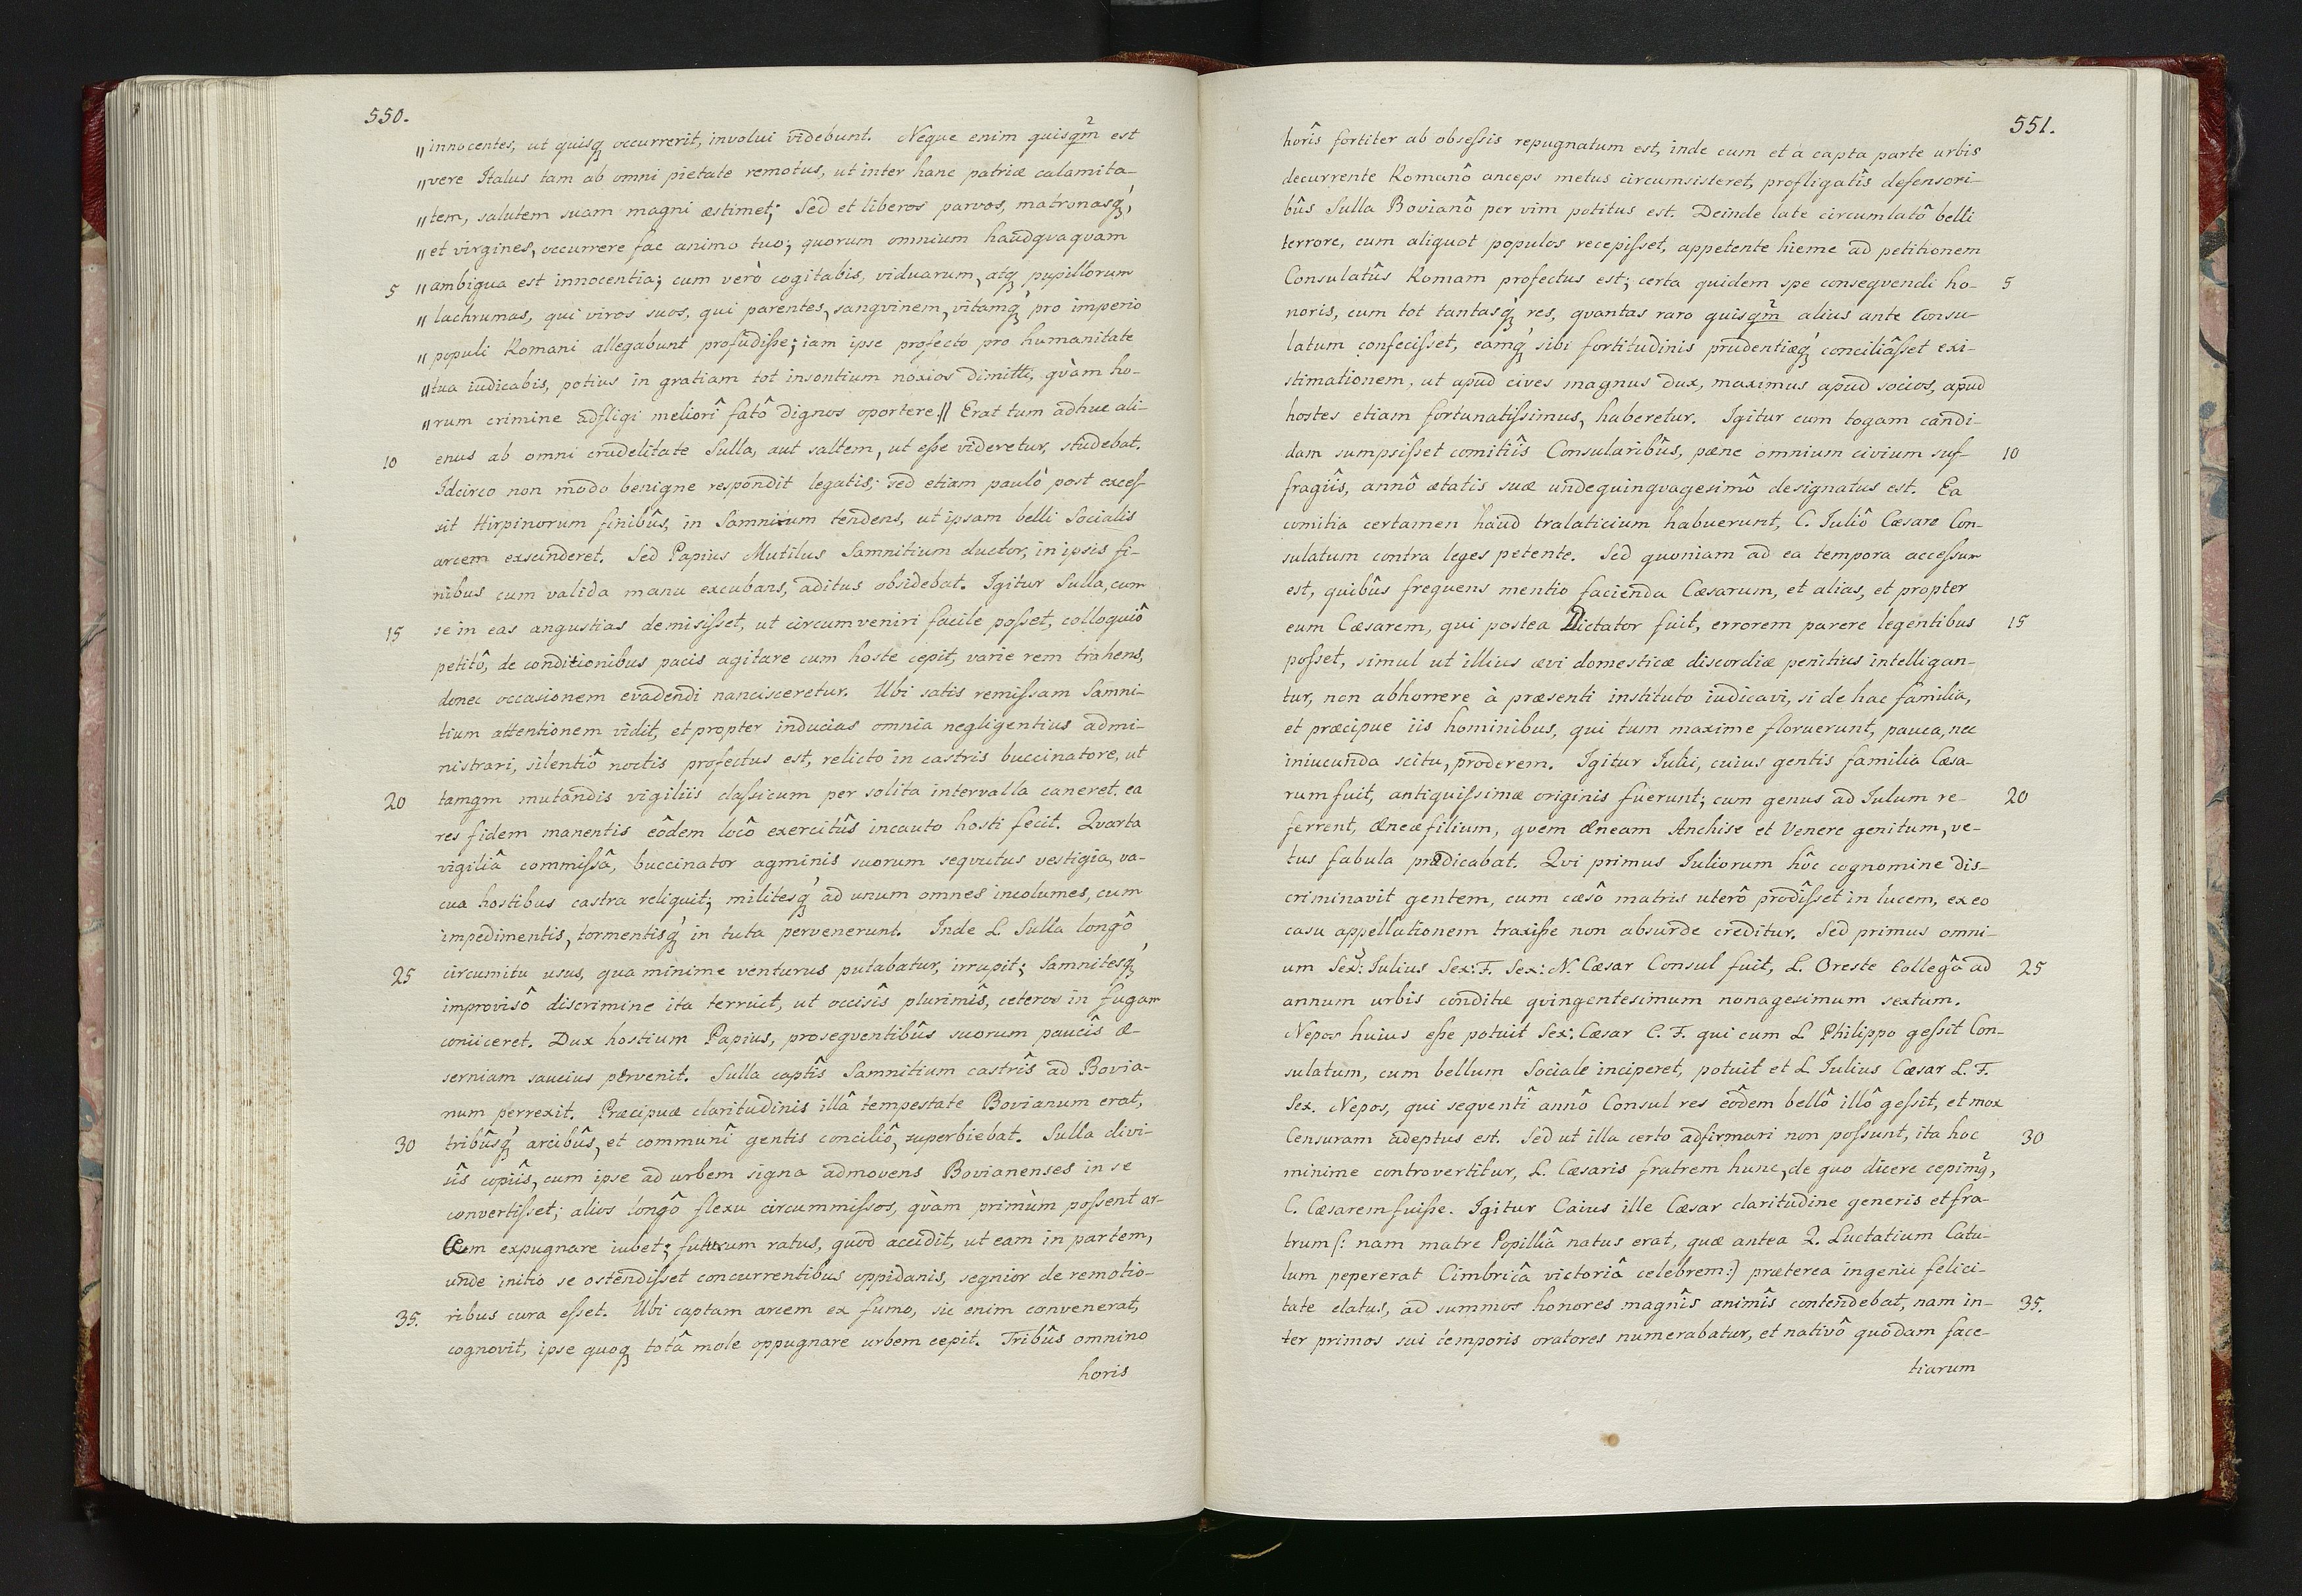 550.
„innocentes, ut quisq̨ occurrerit, involui videbunt. Neque enim quisqm̃ est
„vere Italus tam ab omni pietate remotus, ut inter hanc patriæ calamita-
„tem, salutem suam magni æstimet; Sed et liberos parvos, matronasq̨́,
„et virgines, occurrere fac animo tuo; quorum omnium haudqvaqvam
5 „ambigua est innocentia; cum verò cogitabis, viduarum, atq̨ pupillorum
„lachrumas, qui viros suos, qui parentes, sangvinem, vitamq̨́ pro imperio
„populi Romani allegabunt profudiſse; iam ipse profecto pro humanitate
„tua iudicabis, potius in gratiam tot insontium noxios dimitti, qvàm ho-
„rum crimine adfligi meliorî fatô dignos oportere.„ Erat tum adhuc ali-
10 enus ab omni crudelitate Sulla, aut saltem, ut eſse videretur, studebat.
Idcirco non modo benigne respondit legatis; sed etiam paulò post exceſ-
sit Hirpinorum finibûs, in Samnium tendens, ut ipsam belli Socialis
arcem exscinderet. Sed Papius Mutilus Samnitium ductor, in ipsis fi-
nibus cum valida manu excubans, aditus obsidebat. Igitur Sulla, cum
15 se in eas angustias demisiſset, ut circumveniri facile poſset, colloquiô
petitô, de conditionibus pacis agitare cum hoste cepit, varie rem trahens,
donec occasionem evadendi nancisceretur. Ubi satis remiſsam Samni-
tium attentionem vidit, et propter inducias omnia negligentius admi-
nistrari, silentiô noctis profectus est, relicto in castris buccinatore, ut
20 tamqm mutandis vigiliis claſsicum per solita intervalla caneret. ea
res fidem manentis eôdem locô exercitûs incauto hosti fecit. Qvarta
vigiliâ commiſsâ, buccinator agminis suorum seqvutus vestigia, va-
cua hostibus castra reliquit; militesq̨́ ad unum omnes incolumes, cum
impedimentis, tormentisq̨́ in tuta pervenerunt. Inde L. Sulla longô
25 circumitu usus, qua minime venturus putabatur, irrupit; Samnitesq̨́
improvisô discrimine ita terruit, ut occisîs plurimîs, ceteros in fugam
coniiceret. Dux hostium Papius, proseqventibûs suorum paucîs Æ-
serniam saucius pervenit. Sulla captîs Samnitium castrîs ad Bovia-
num perrexit. Præcipuæ claritudinis illâ tempestate Bovianum erat,
30 tribûsq̨́ arcibûs, et communî gentis conciliô, superbiebat. Sulla divi-
sîs copiîs, cum ipse ad urbem signa admovens Bovianenses in se
convertiſset; alios longô flexu circummiſsos, qvàm primùm poſsent ar-
cem expugnare iubet; futurum ratus, quod accidit, ut eam in partem,
unde initio se ostendiſset concurrentibus oppidanis, segnior de remotio-
35. ribus cura eſset. Ubi captam arcem ex fumo, sic enim convenerat,
cognovit, ipse quoq̨ totâ mole oppugnare urbem cepit. Tribûs omnino
horis
551.
horîs fortiter ab obseſsis repugnatum est, inde cum et à capta parte urbis
decurrente Romanô anceps metus circumsisteret, profligatîs defensori-
bûs Sulla Bovianô per vim potitus est. Deinde late circumlatô belli
terrore, cum aliquot populos recepiſset, appetente hieme ad petitionem
Consulatûs Romam profectus est; certa quidem spe conseqvendi ho- 5
noris, cum tot tantasq̨́ res, qvantas raro quisqm̃ alius ante Consu-
latum confeciſset, eamq̨́ sibi fortitudinis prudentiæq̨́ conciliâſset exi-
stimationem, ut apud cives magnus dux, maximus apud socios, apud
hostes etiam fortunatiſsimus, haberetur. Igitur cum togam candi-
dam sumpsiſset comitiîs Consularibûs, pæne omnium civium suf- 10
fragiîs, annô ætatis suæ undequinqvagesimô designatus est. Ea
comitia certamen haud tralaticium habuerunt, C. Iuliô Cæsare Con-
sulatum contra leges petente. Sed quoniam ad ea tempora acceſsum
est, quibûs frequens mentio facienda Cæsarum, et alias, et propter
eum Cæsarem, qui postea Dictator fuit, errorem parere legentibus 15
poſset, simul ut illius ævi domesticæ discordiæ penitius intelligan-
tur, non abhorrere à præsenti instituto iudicavi, si de hac familia,
et præcipue iis hominibus, qui tum maxime floruerunt, pauca, nec
iniucunda scitu, proderem. Igitur Iulii, cuius gentis familia Cæsa-
rum fuit, antiquiſsimæ originis fuerunt; cum genus ad Iulum re- 20
ferrent, Æneæ filium, qvem Æneam Anchise et Venere genitum, ve-
tus fabula prædicabat. Qvi primus Iuliorum hôc cognomine dis-
criminavit gentem, cum cæsô matris uterô prodîſset in lucem, ex eo
casu appellationem traxiſse non absurde creditur. Sed primus omni-
um Sex: Iulius Sex: F. Sex: N. Cæsar Consul fuit, L. Oreste Collegâ ad 25
annum urbis conditæ qvingentesimum nonagesimum sextum.
Nepos huius eſse potuit Sex: Cæsar C. F. qui cum L Philippo geſsit Con-
sulatum, cum bellum Sociale inciperet, potuit et L Iulius Cæsar L. F.
Sex. Nepos, qui seqventî annô Consul res eôdem bellô illô geſsit, et mox
Censuram adeptus est. Sed ut illa certo adfirmari non poſsunt, ita hoc 30
minime controvertitur, L. Cæsaris fratrem hunc, de quo dicere cepimq̃,
C. Cæsarem fuiſse. Igitur Caius ille Cæsar claritudine generis et fra-
trum (: nam matre Popilliâ natus erat, quæ antea Q. Luctatium Catu-
lum pepererat Cimbricâ victoriâ celebrem:) præterea ingenii felici-
tate elatus, ad summos honores magnîs animîs contendebat, nam in- 35.
ter primos sui temporis oratores numerabatur, et nativô quodam face-
tiarum